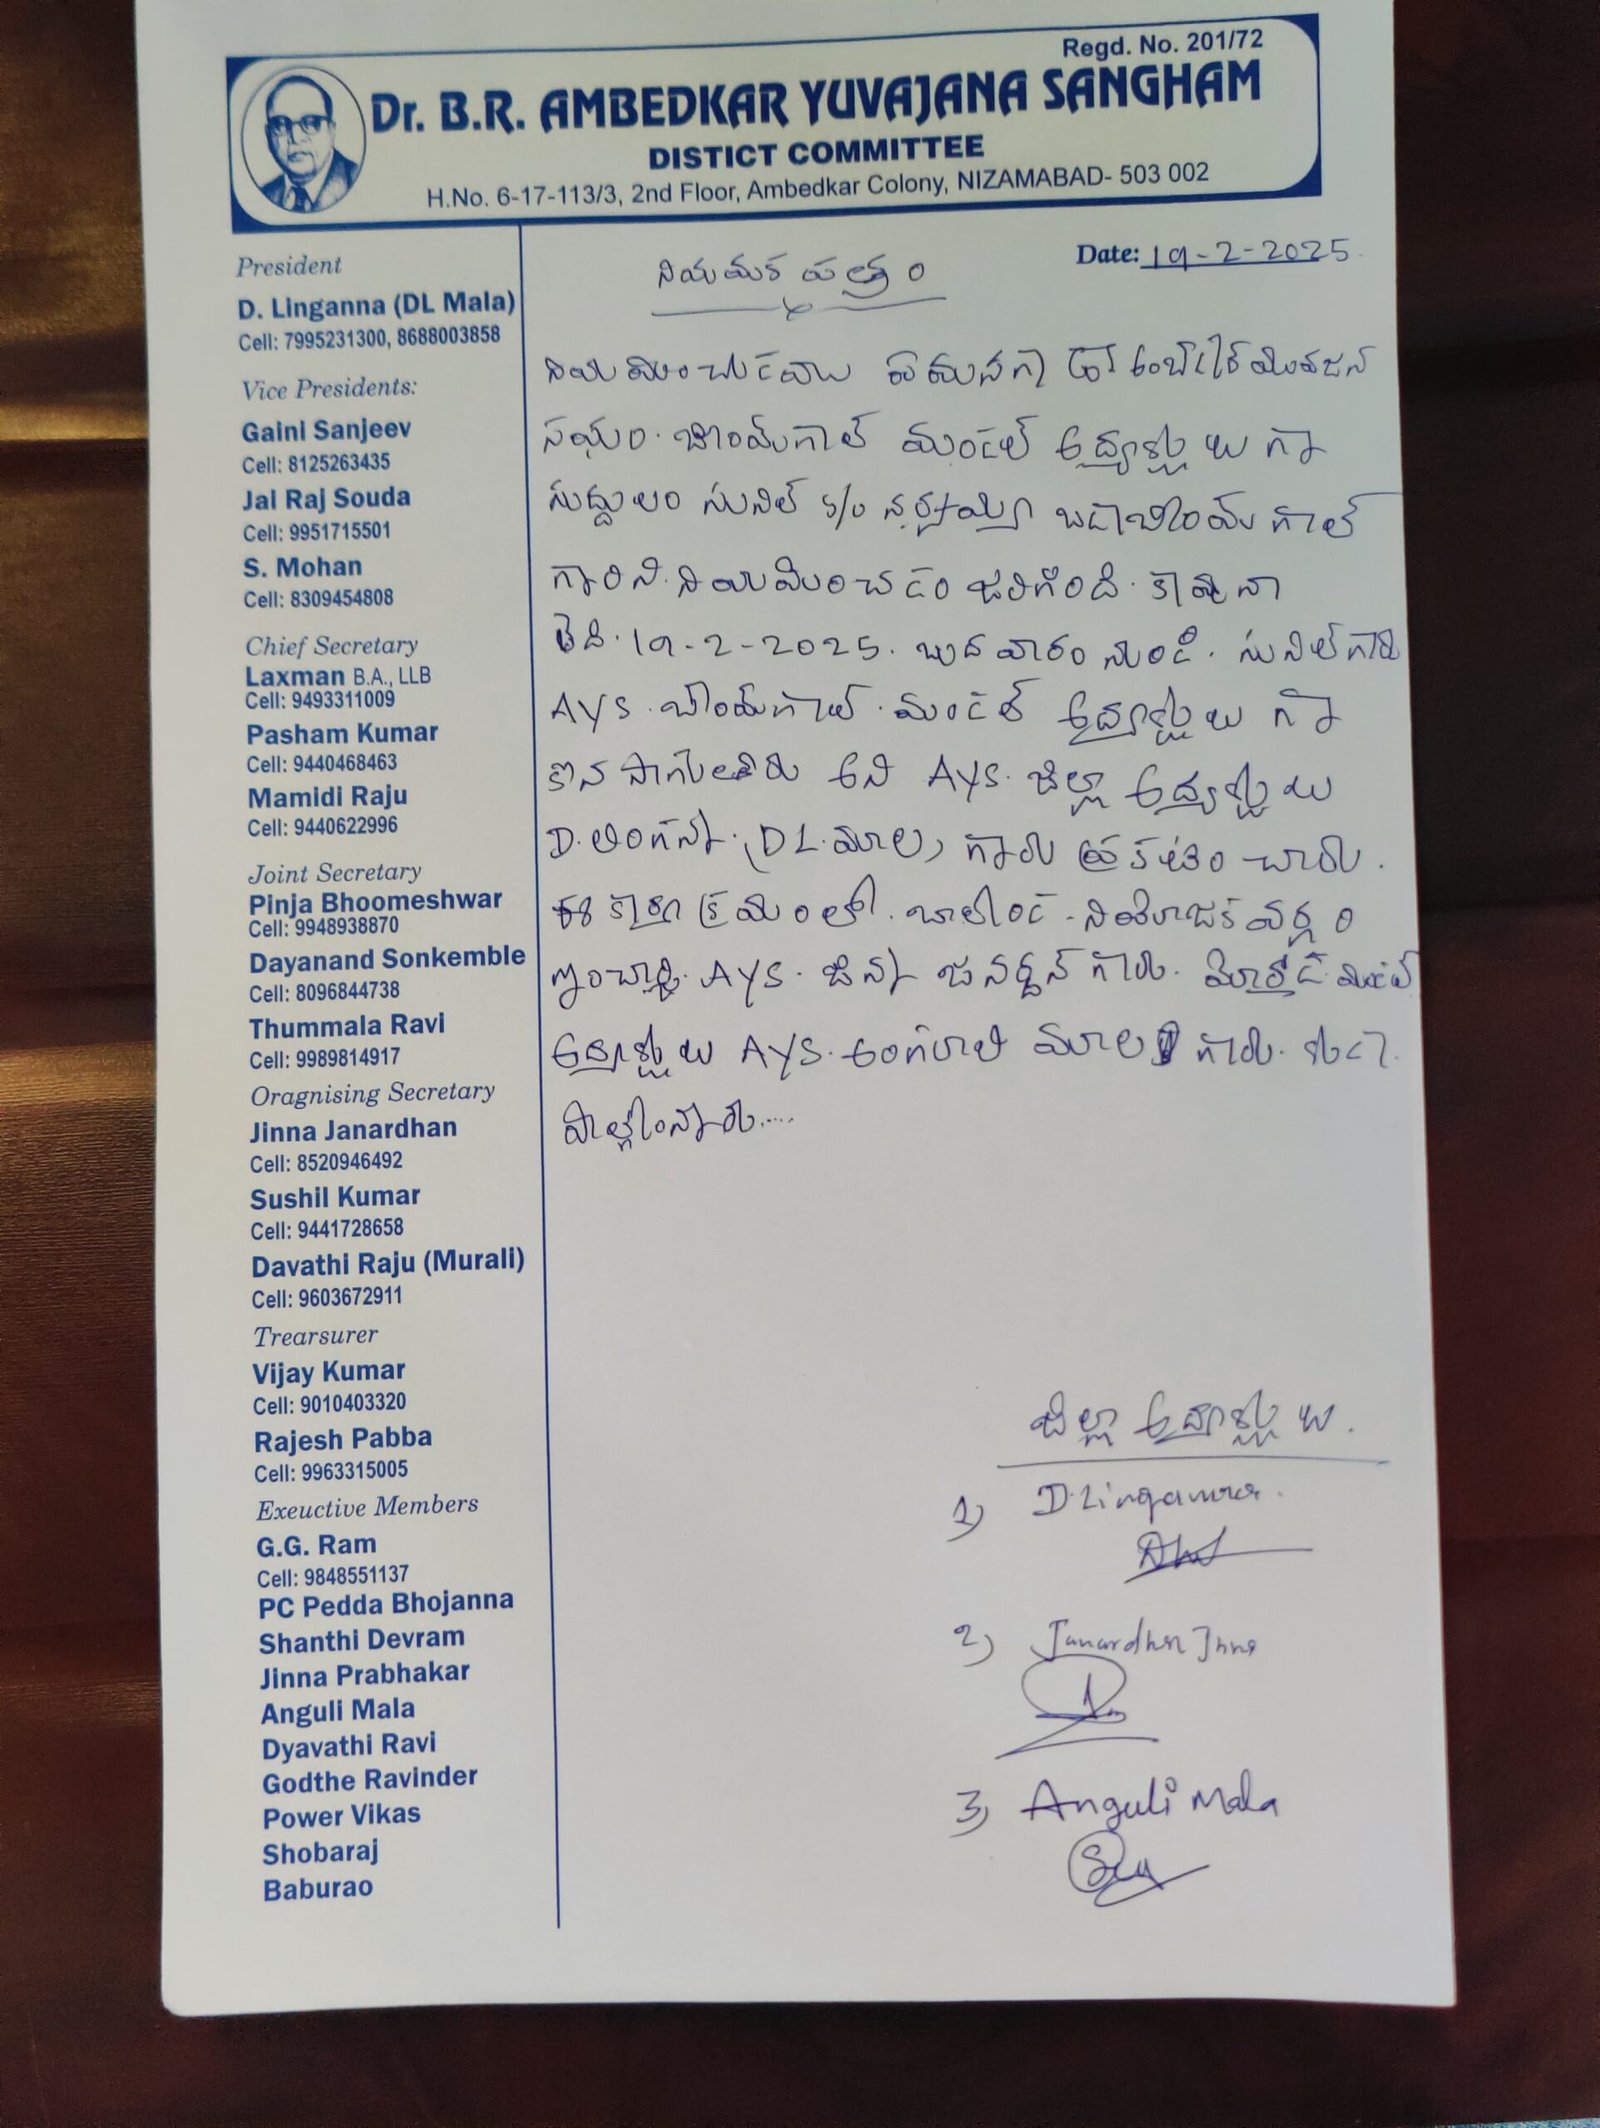 Regd. No. 201/72
Dr. B.R. AMBEDKAR YUVAJANA SANGHAM
DISTICT COMMITTEE
H.No. 6-17-113/3, 2nd Floor, Ambedkar Colony, NIZAMABAD- 503 002
President
D. Linganna (DL Mala)
Cell: 7995231300, 8688003858
Vice Presidents:
Gaini Sanjeev
Cell: 8125263435
Jai Raj Souda
Cell: 9951715501
S. Mohan
Cell: 8309454808
Chief Secretary
Laxman B.A., LLB
Cell: 9493311009
Pasham Kumar
Cell: 9440468463
Mamidi Raju
Cell: 9440622996
Joint Secretary
Pinja Bhoomeshwar
Cell: 9948938870
Dayanand Sonkemble
Cell: 8096844738
Thummala Ravi
Cell: 9989814917
Oragnising Secretary
Jinna Janardhan
Cell: 8520946492
Sushil Kumar
Cell: 9441728658
Davathi Raju (Murali)
Cell: 9603672911
Trearsurer
Vijay Kumar
Cell: 9010403320
Rajesh Pabba
Cell: 9963315005
Exeuctive Members
G.G. Ram
Cell: 9848551137
PC Pedda Bhojanna
Shanthi Devram
Jinna Prabhakar
Anguli Mala
Dyavathi Ravi
Godthe Ravinder
Power Vikas
Shobaraj
Baburao
Date: 19-2-2025.
నియమక పత్రం
సఘం. భీంమ్‌గాల్ మండల్ అద్యక్షులు గా
సుద్దులం సునిల్ S/o బడాభీంమ్ గాల్
గారిని. నియమించడం జరిగింది. కావునా
తేది. 19-2-2025. బుదవారం నుండి. సునిల్ గారు
AYS. భీంమ్‌గాల్. మండల్ అద్యక్షులు గా
కొనసాగుతారు అని AYS. జిల్లా అద్యక్షులు
D. లింగన్న. (DL. మాల) గారు ప్రకటించారు.
ఈ కార్యక్రమంలో. బాల్కొండ. నియోజకవర్గం
ఇంచార్జి. AYS. జిన్న జనర్ధన్ గారు. మోర్తాడ్ మండల్
అద్యక్షులు AYS. అంగులి మాల గారు. కుడా.
పాల్గొన్నారు.....
జిల్లా అద్యక్షులు.
1) D. Linganna.
2) Janardhan Jinna
3) Anguli Mala